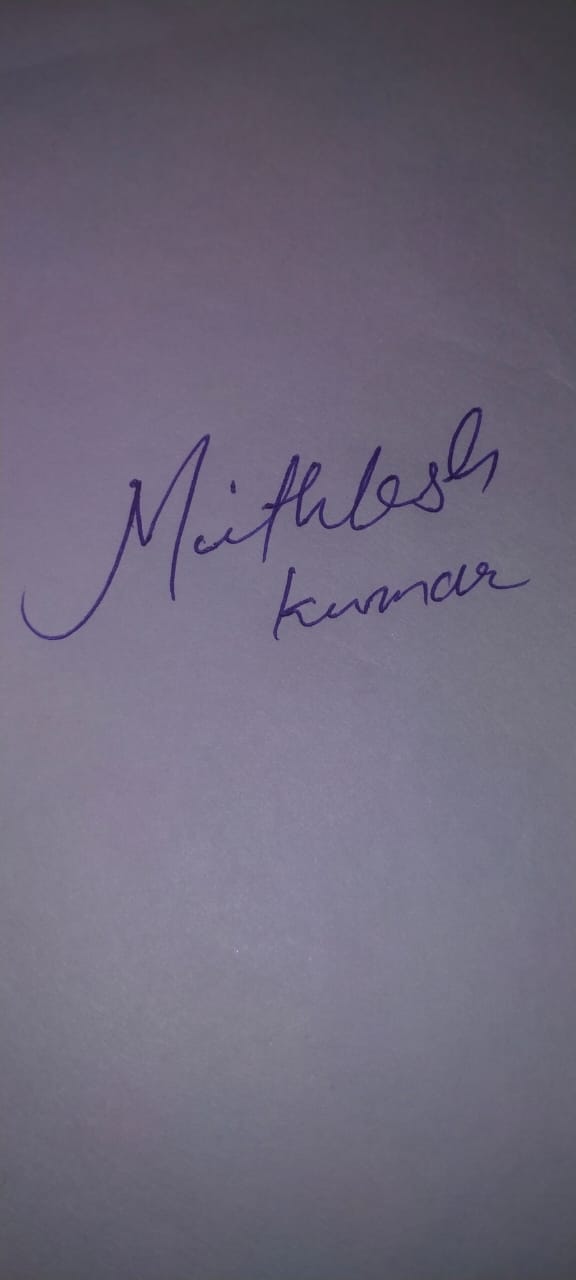 Mithlesh
kumar